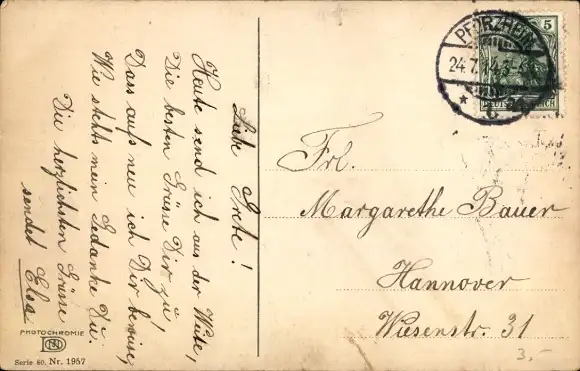 Liebe Grete!
Heute send ich aus der Weite,
Die besten Grüsse Dir zu,
Dass aufs neu ich Dir beweise,
Wie stehts mein Gedanke Du.
Die herzlichsten Grüsse
sendet Elsa
PHOTOCHROMIE
Serie 60. Nr. 1957
PFORZHEIM
24.7.
5
Frl.
Margarethe Bauer
Hannover
Wiesenstr. 31
3,-